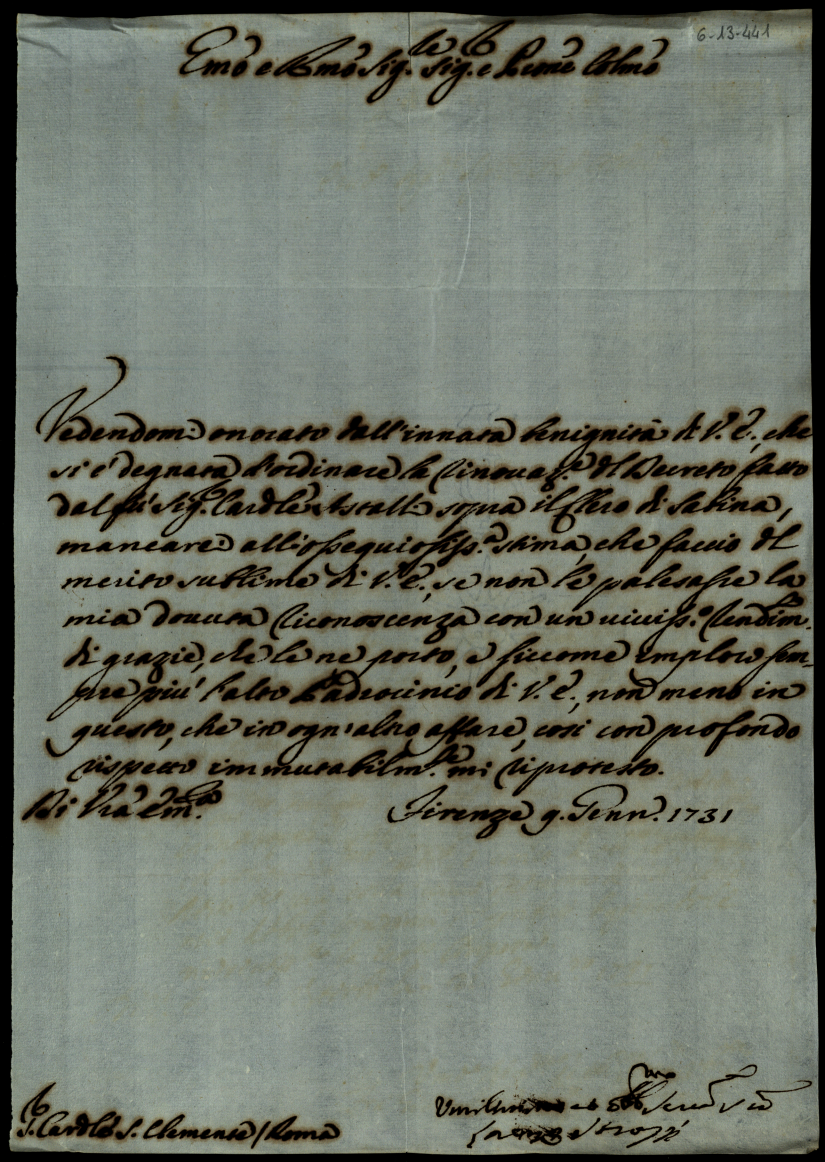 6-13-441
Emõ e Rmõ Sig.re Sig.r e Pronẽ Colmõ
Vedendomi onorato dall'innata benignità di V. E., che
si è degnata d'ordinare la rinovaz.e del Decreto fatto
dal fù Sig.r Cardle Astalli sopra il Clero di Sabina,
mancarei all'ossequiosiss.a stima, che faccio del
merito sublime di V. E., se non le palesassi la
mia dovuta riconoscenza con un viviss.o rendim.to
di grazie, che le ne porto, e siccome imploro sem-
pre più l'alto Padrocinio di V. E., non meno in
questo, che in ogn'altro affare, così con profondo
rispetto immutabilm.te mi riprotesto.
Di Vrã Em.za
Firenze 9. Genn.o 1731
S.r Cardle S. Clemente / Roma
Strozzi